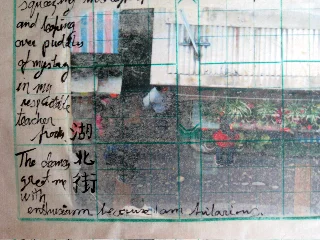 and looping
over puddles
of mystery
in my
respectable
teacher
from 湖北街
The
great me
with
enthusiasm because I am hilarious.